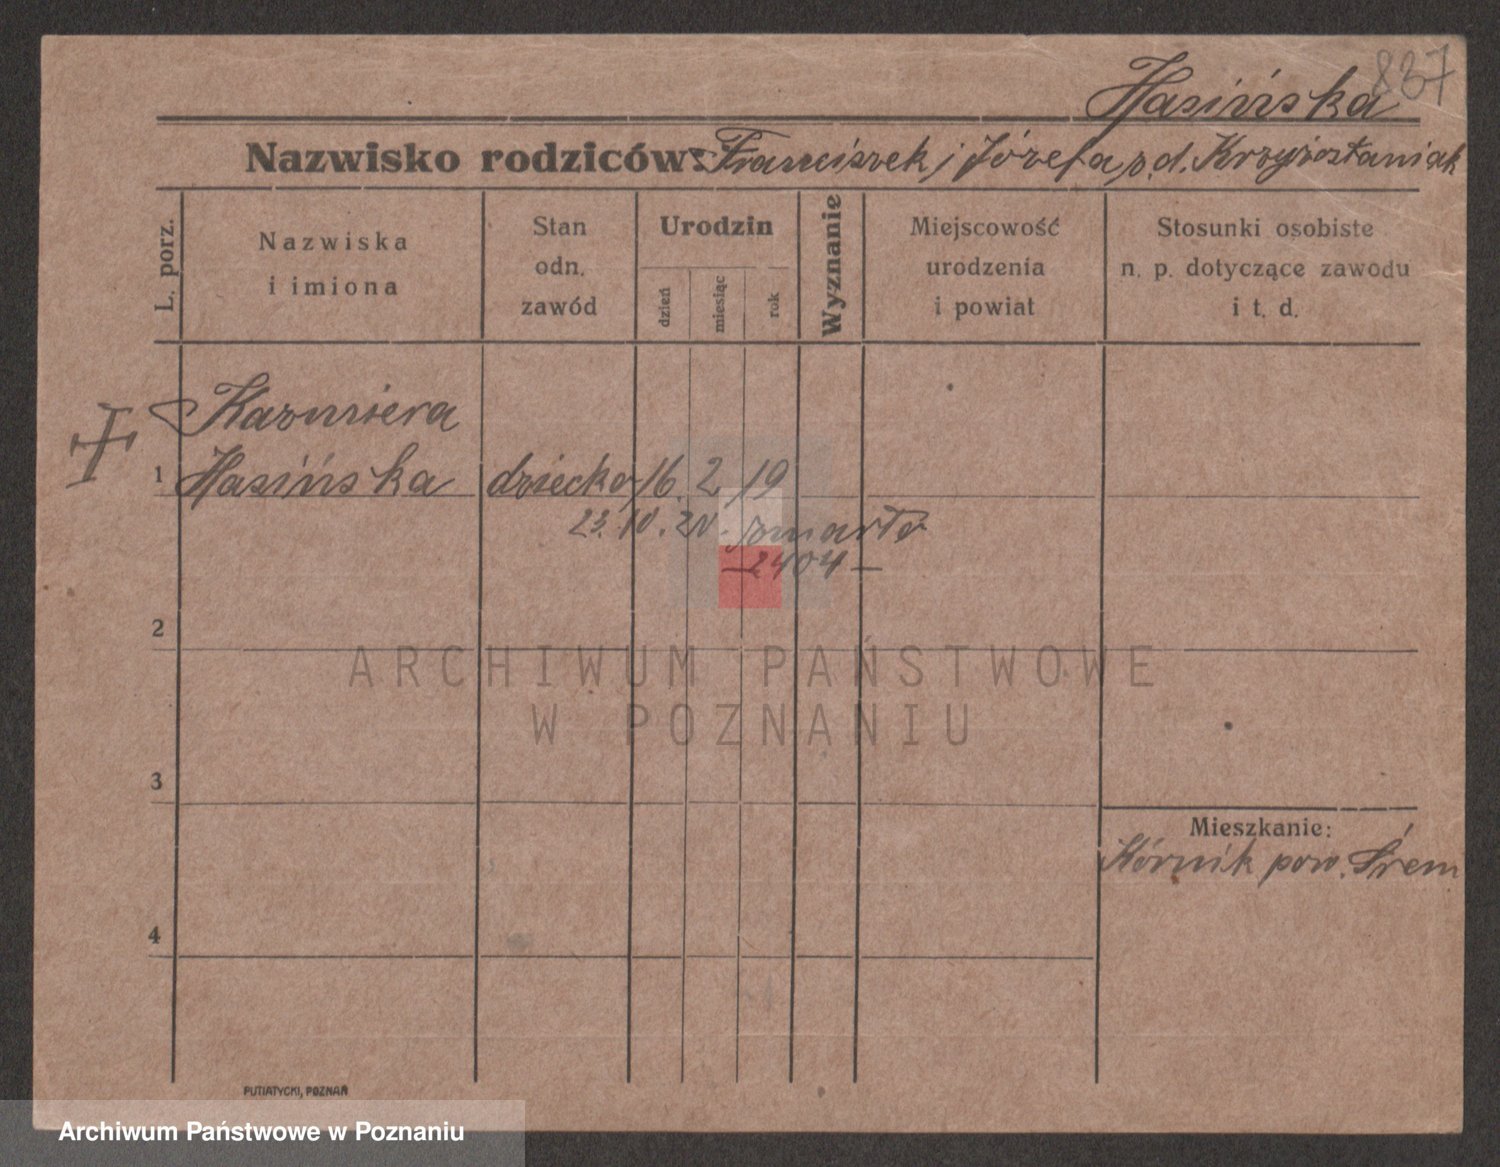 837
Hasińska
Nazwisko rodziców: Franciszek i Józefa z. d. Krzyżostaniak
L. porz.
Nazwiska
i imiona
Stan
odn.
zawód
Urodzin
dzień
miesiąc
rok
Wyznanie
Miejscowość
urodzenia
i powiat
Stosunki osobiste
n. p. dotyczące zawodu
i t. d.
Kazmiera
1 Hasińska dziecko 16. 2 19
zmarła
-2404-
2
ARCHIWUM PAŃSTWOWE
W POZNANIU
3
Mieszkanie:
Kórnik pow. Śrem
4
PUTIATYCKI, POZNAŃ
Archiwum Państwowe w Poznaniu